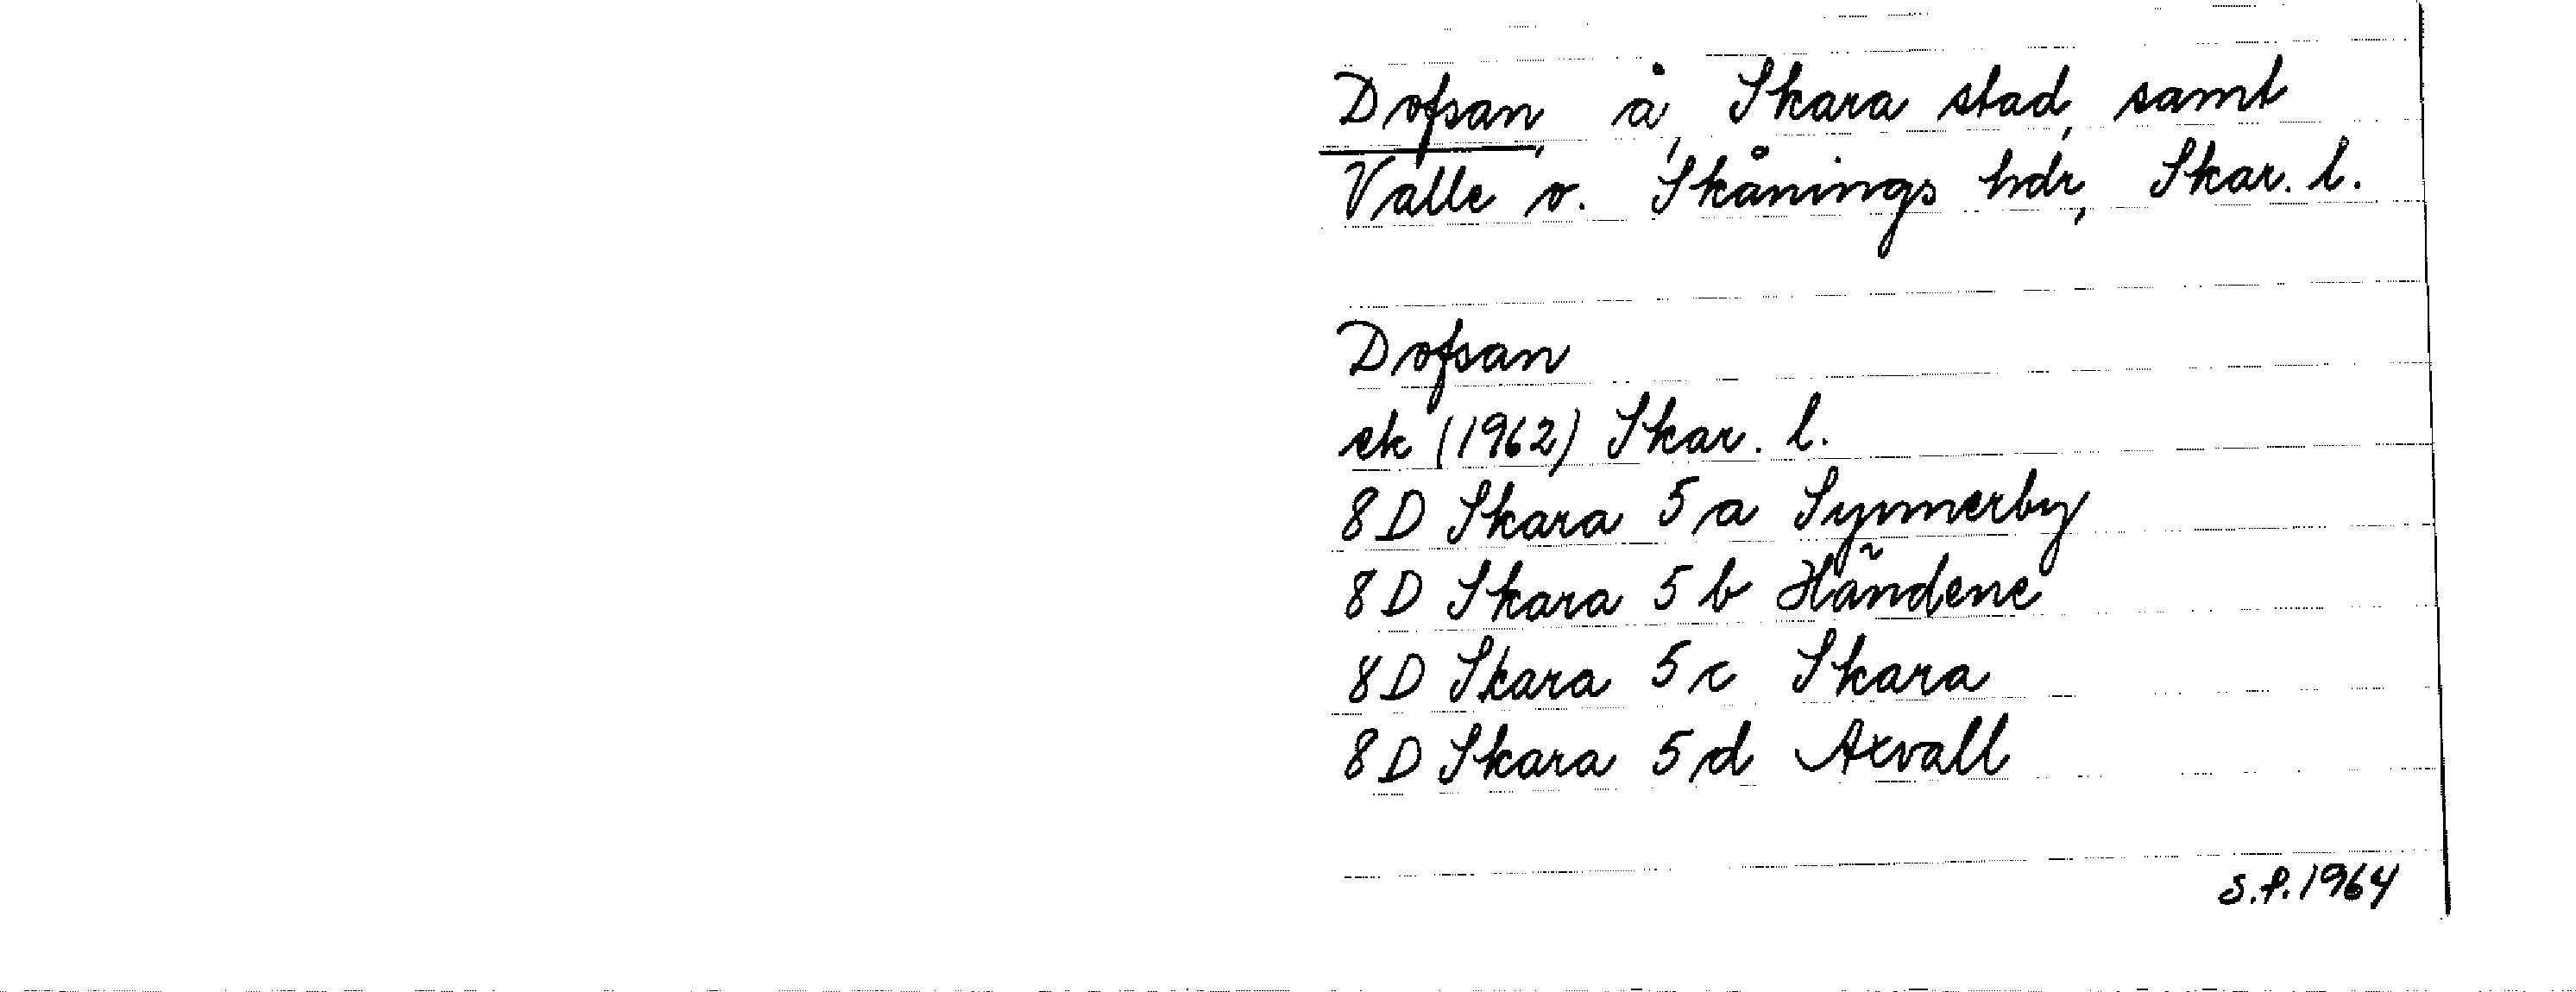 Dofsan, å, Skara stad, samt
Valle o. Skånings hdr, Skar. l.
Dofsan
ek (1962) Skar. l.
8D Skara 5a Synnerby
8D Skara 5b Händene
8D Skara 5c Skara
8D Skara 5d Axvall
S.f. 1964